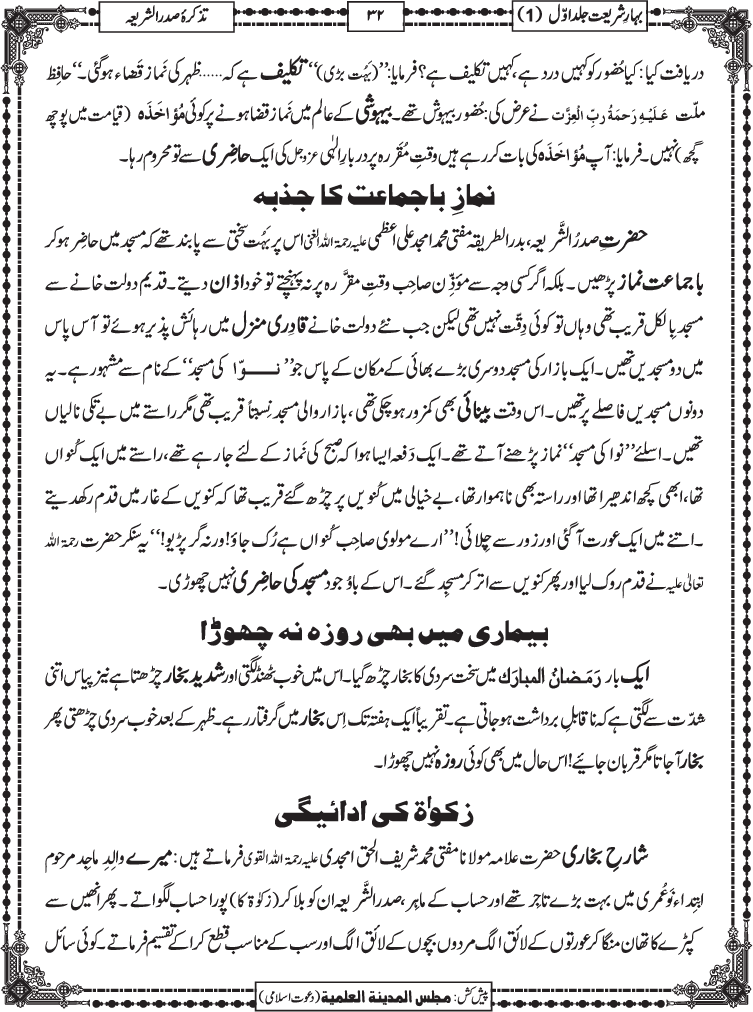 بہارِ شریعت جلد اوّل (1)
۳۲
تذکرۂ صدر الشریعہ
دریافت کیا: کیا حُضور کو کہیں درد ہے، کہیں تکلیف ہے؟ فرمایا: ’’(بَہُت بڑی)‘‘ تکلیف ہے کہ......ظہر کی نَماز قَضاء ہو گئی۔‘‘ حافِظ
ملّت عَلَیْہِ رَحمَۃُ ربِّ الْعِزَّت نے عرض کی: حُضور بیہوش تھے۔ بیہوشی کے عالم میں نَماز قضا ہونے پر کوئی مُؤاخَذَہ (قیامت میں پوچھ
گچھ) نہیں۔ فرمایا: آپ مُؤاخَذَہ کی بات کر رہے ہیں وقتِ مقَرَّرہ پر دربارِ الٰہی عزوجل کی ایک حاضِری سے تو محروم رہا۔
نمازِ باجماعت کا جذبہ
حضرتِ صدرُ الشَّریعہ، بدرُ الطریقہ مفتی محمد امجد علی اعظمی علیہ رحمۃ اللہ الغنی اس پر بَہُت سختی سے پابند تھے کہ مسجد میں حاضِر ہو کر
باجماعت نَماز پڑھیں۔ بلکہ اگر کسی وجہ سے مؤذِّن صاحِب وقتِ مقرَّرہ پر نہ پہنچتے تو خود اذان دیتے۔ قدیم دولت خانے سے
مسجد بِالکل قریب تھی وہاں تو کوئی دِقّت نہیں تھی لیکن جب نئے دولت خانے قادِری منزِل میں رہائش پذیر ہوئے تو آس پاس
میں دو مسجدیں تھیں۔ ایک بازار کی مسجد دوسری بڑے بھائی کے مکان کے پاس جو ’’نــوّا کی مسجد‘‘ کے نام سے مشہور ہے۔ یہ
دونوں مسجدیں فاصلے پر تھیں۔ اس وقت بِینائی بھی کمزور ہو چکی تھی، بازار والی مسجد نِسبتاً قریب تھی مگر راستے میں بے تکی نالیاں
تھیں۔ اسلئے ’’نوا کی مسجد‘‘ نماز پڑھنے آتے تھے۔ ایک دَفعہ ایسا ہوا کہ صبح کی نَماز کے لئے جا رہے تھے، راستے میں ایک کُنواں
تھا، ابھی کچھ اندھیرا تھا اور راستہ بھی ناہموار تھا، بے خیالی میں کُنویں پر چڑھ گئے قریب تھا کہ کنویں کے غار میں قدم رکھ دیتے
۔ اتنے میں ایک عورت آ گئی اور زور سے چِلّائی! ’’ارے مولوی صاحِب کُنواں ہے رُک جاؤ! ورنہ گر پڑیو!‘‘ یہ سنکر حضرت رحمۃ اللہ
تعالٰی علیہ نے قدم روک لیا اور پھر کنویں سے اتر کر مسجِد گئے۔ اس کے باوُجود مسجد کی حاضِری نہیں چھوڑی۔
بیماری میں بھی روزہ نہ چھوڑا
ایک بار رَمَضانُ المبارَک میں سخت سردی کا بخار چڑھ گیا۔ اس میں خوب ٹھنڈ لگتی اور شدید بخار چڑھتا ہے نیز پیاس اتنی
شدّت سے لگتی ہے کہ ناقابلِ برداشت ہو جاتی ہے۔ تقریباً ایک ہفتہ تک اِس بخار میں گرفتار رہے۔ ظہر کے بعد خوب سردی چڑھتی پھر
بخار آ جاتا مگر قربان جائیے! اس حال میں بھی کوئی روزہ نہیں چھوڑا۔
زکوٰۃ کی ادائیگی
شارِحِ بخاری حضرت علامہ مولانا مفتی محمد شریف الحق امجدی علیہ رحمۃ اللہ القوی فرماتے ہیں: میرے والِدِ ماجِد مرحوم
ابتِداء نَوعُمری میں بہت بڑے تاجِر تھے اور حساب کے ماہِر، صدرُ الشَّریعہ ان کو بلا کر (زکوٰۃ کا) پورا حساب لگواتے۔ پھر انھیں سے
کپڑے کا تھان منگا کر عورتوں کے لائق الگ مردوں بچوں کے لائق الگ اور سب کے مناسب قطع کرا کے تقسیم فرماتے۔ کوئی سائل
پیش کش: مجلس المدینۃ العلمیۃ (دعوتِ اسلامی)